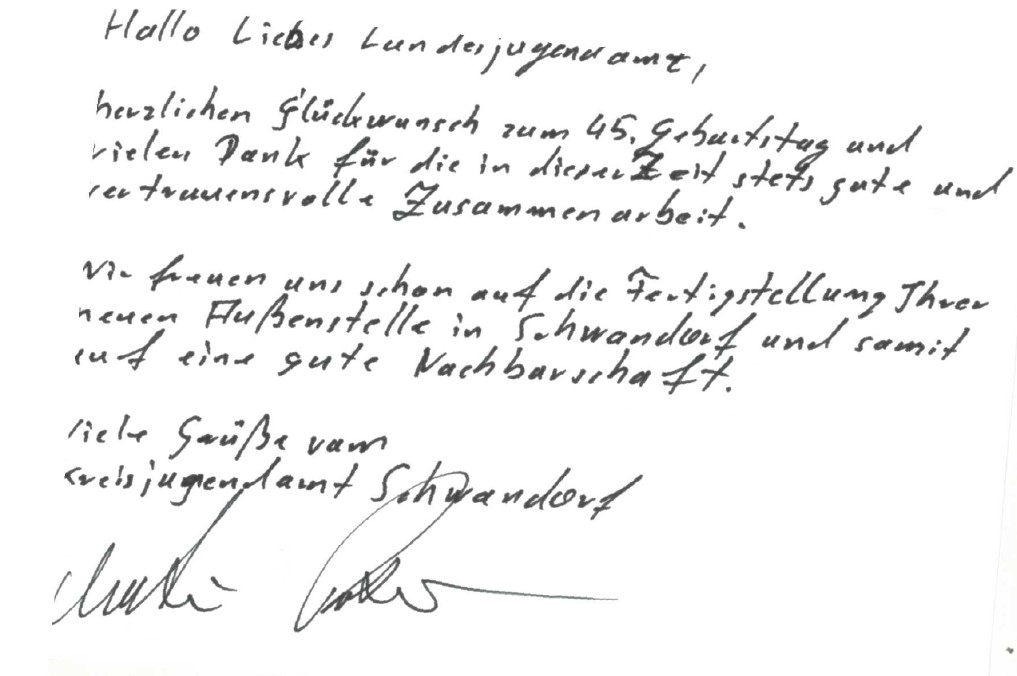 Hallo Liebes Landesjugendamt,
herzlichen Glückwunsch zum 45. Geburtstag und
vielen Dank für die in dieser Zeit stets gute und
vertrauensvolle Zusammenarbeit.
Wir freuen uns schon auf die Fertigstellung Ihrer
neuen Außenstelle in Schwandorf und somit
auf eine gute Nachbarschaft.
Viele Grüße vom
Kreisjugendamt Schwandorf